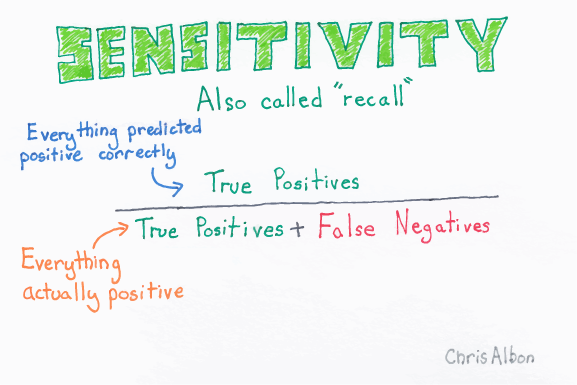 SENSITIVITY
Also called "recall"
Everything predicted
positive correctly
True Positives
True Positives + False Negatives
Everything
actually positive
Chris Albon